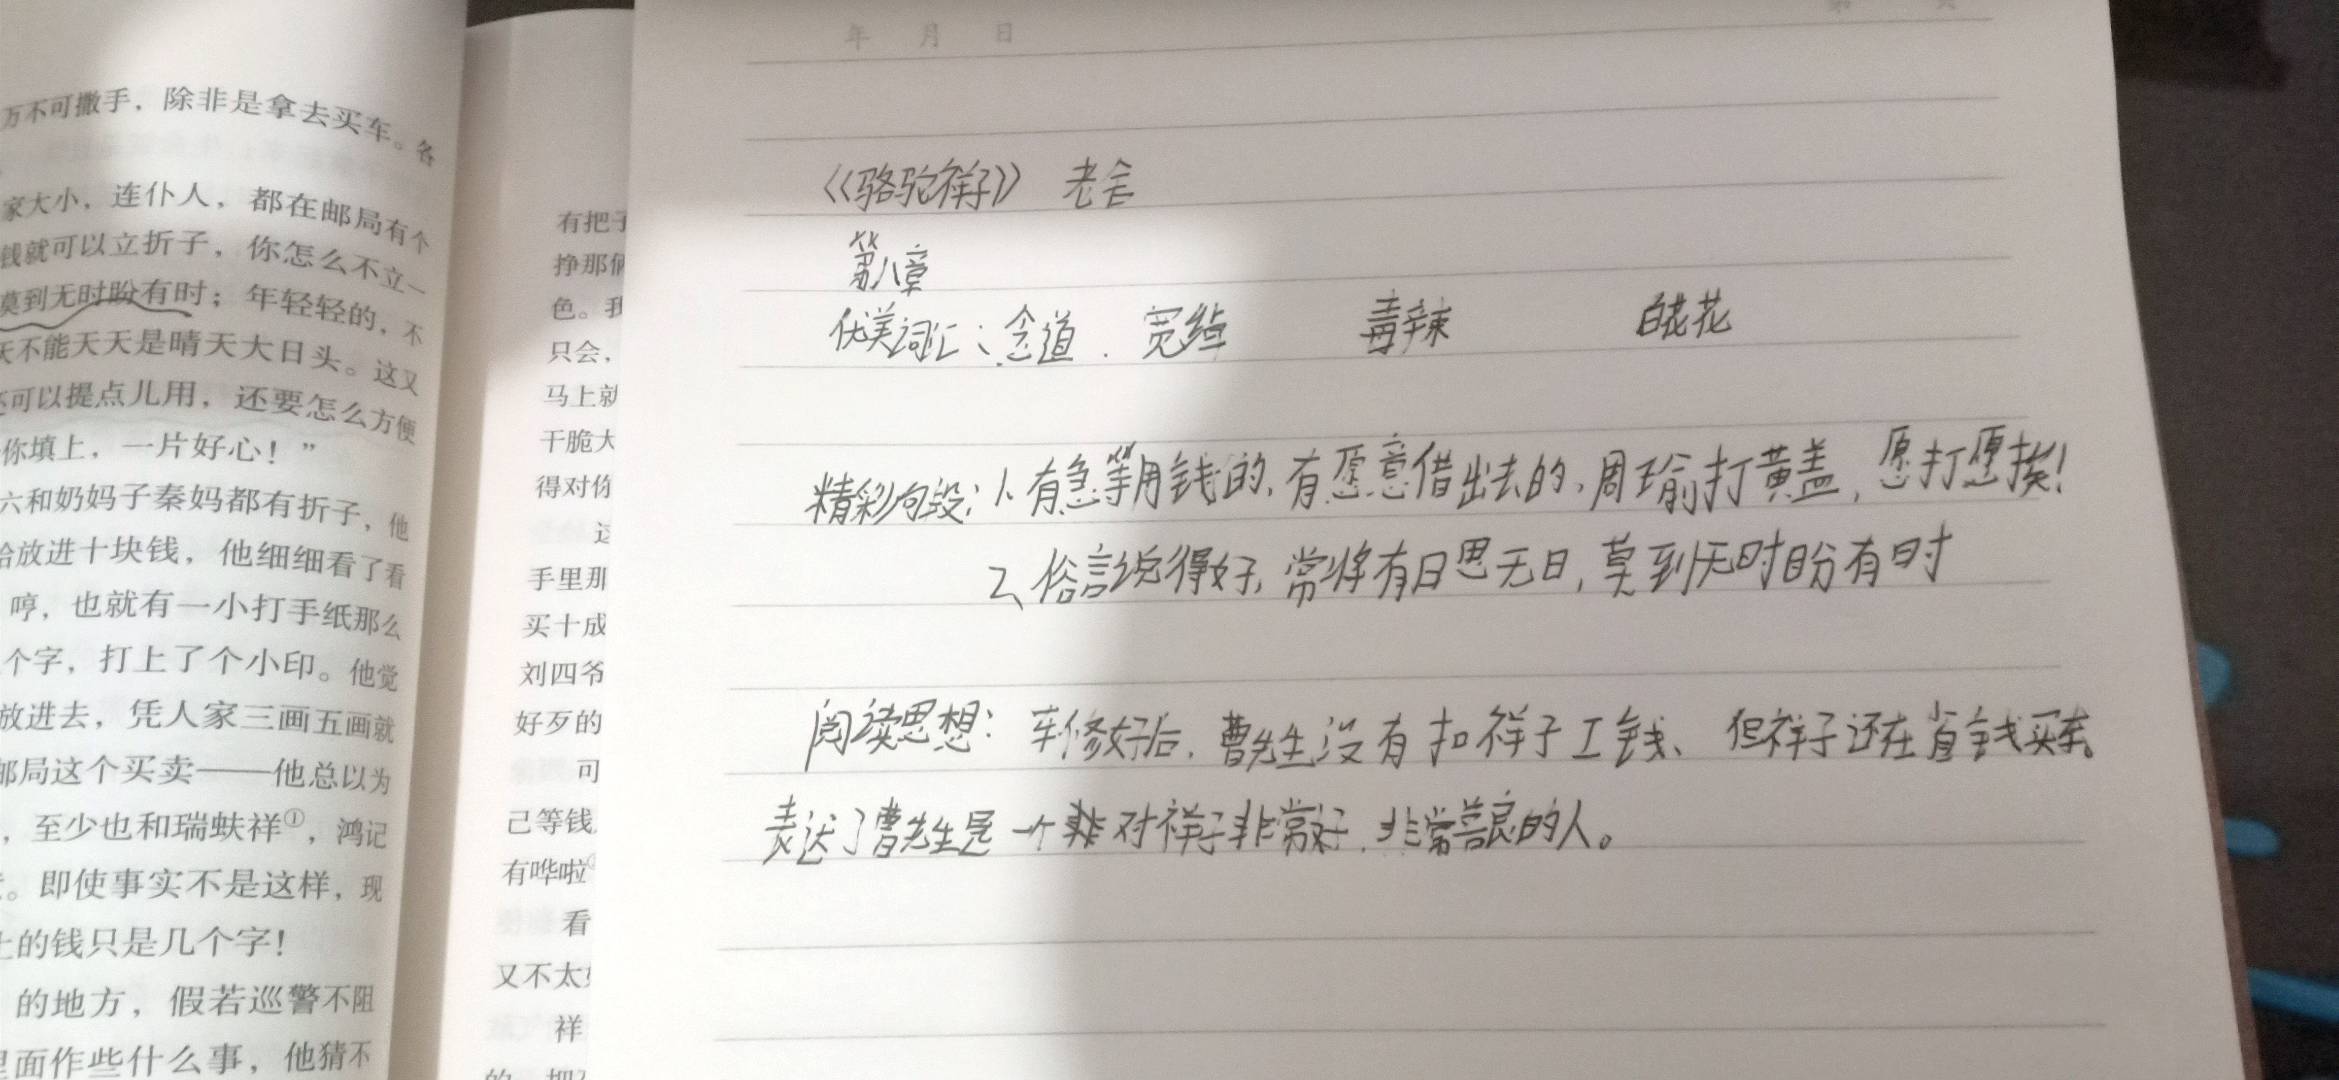 万不可撒手，除非是拿去买车。各
家大小，连仆人，都在邮局有个
钱就可以立折子，你怎么不立一
莫到无时盼有时；年轻轻的，不
天不能天天是晴天大日头。这又
还可以提点儿用，还要怎么方便
你填上，一片好心！”
六和奶妈子秦妈都有折子，他
给放进十块钱，他细细看了看
哼，也就有一小打手纸那么
个字，打上了个小印。他觉
放进去，凭人家三画五画就
邮局这个买卖——他总以为
，至少也和瑞蚨祥①，鸿记
。即使事实不是这样，现
上的钱只是几个字！
的地方，假若巡警不阻
里面作些什么事，他猜不
有把子
挣那俩
色。我
只会，
马上就
干脆大
得对你
这
手里那
买十成
刘四爷
好歹的
可
己等钱
有哗啦
看
又不太
祥
的 把
年 月 日
第 页
《骆驼祥子》 老舍
第八章
优美词汇：念道 . 宽绰 毒辣 花
精彩句段：1、有急等用钱的，有愿意借出去的，周瑜打黄盖，愿打愿挨！
2、俗言说得好，常将有日思无日，莫到无时盼有时
阅读思想：车修好后，曹先生没有扣祥子工钱、但祥子还在省钱买车。
表达了曹先生是一个对祥子非常好，非常善良的人。